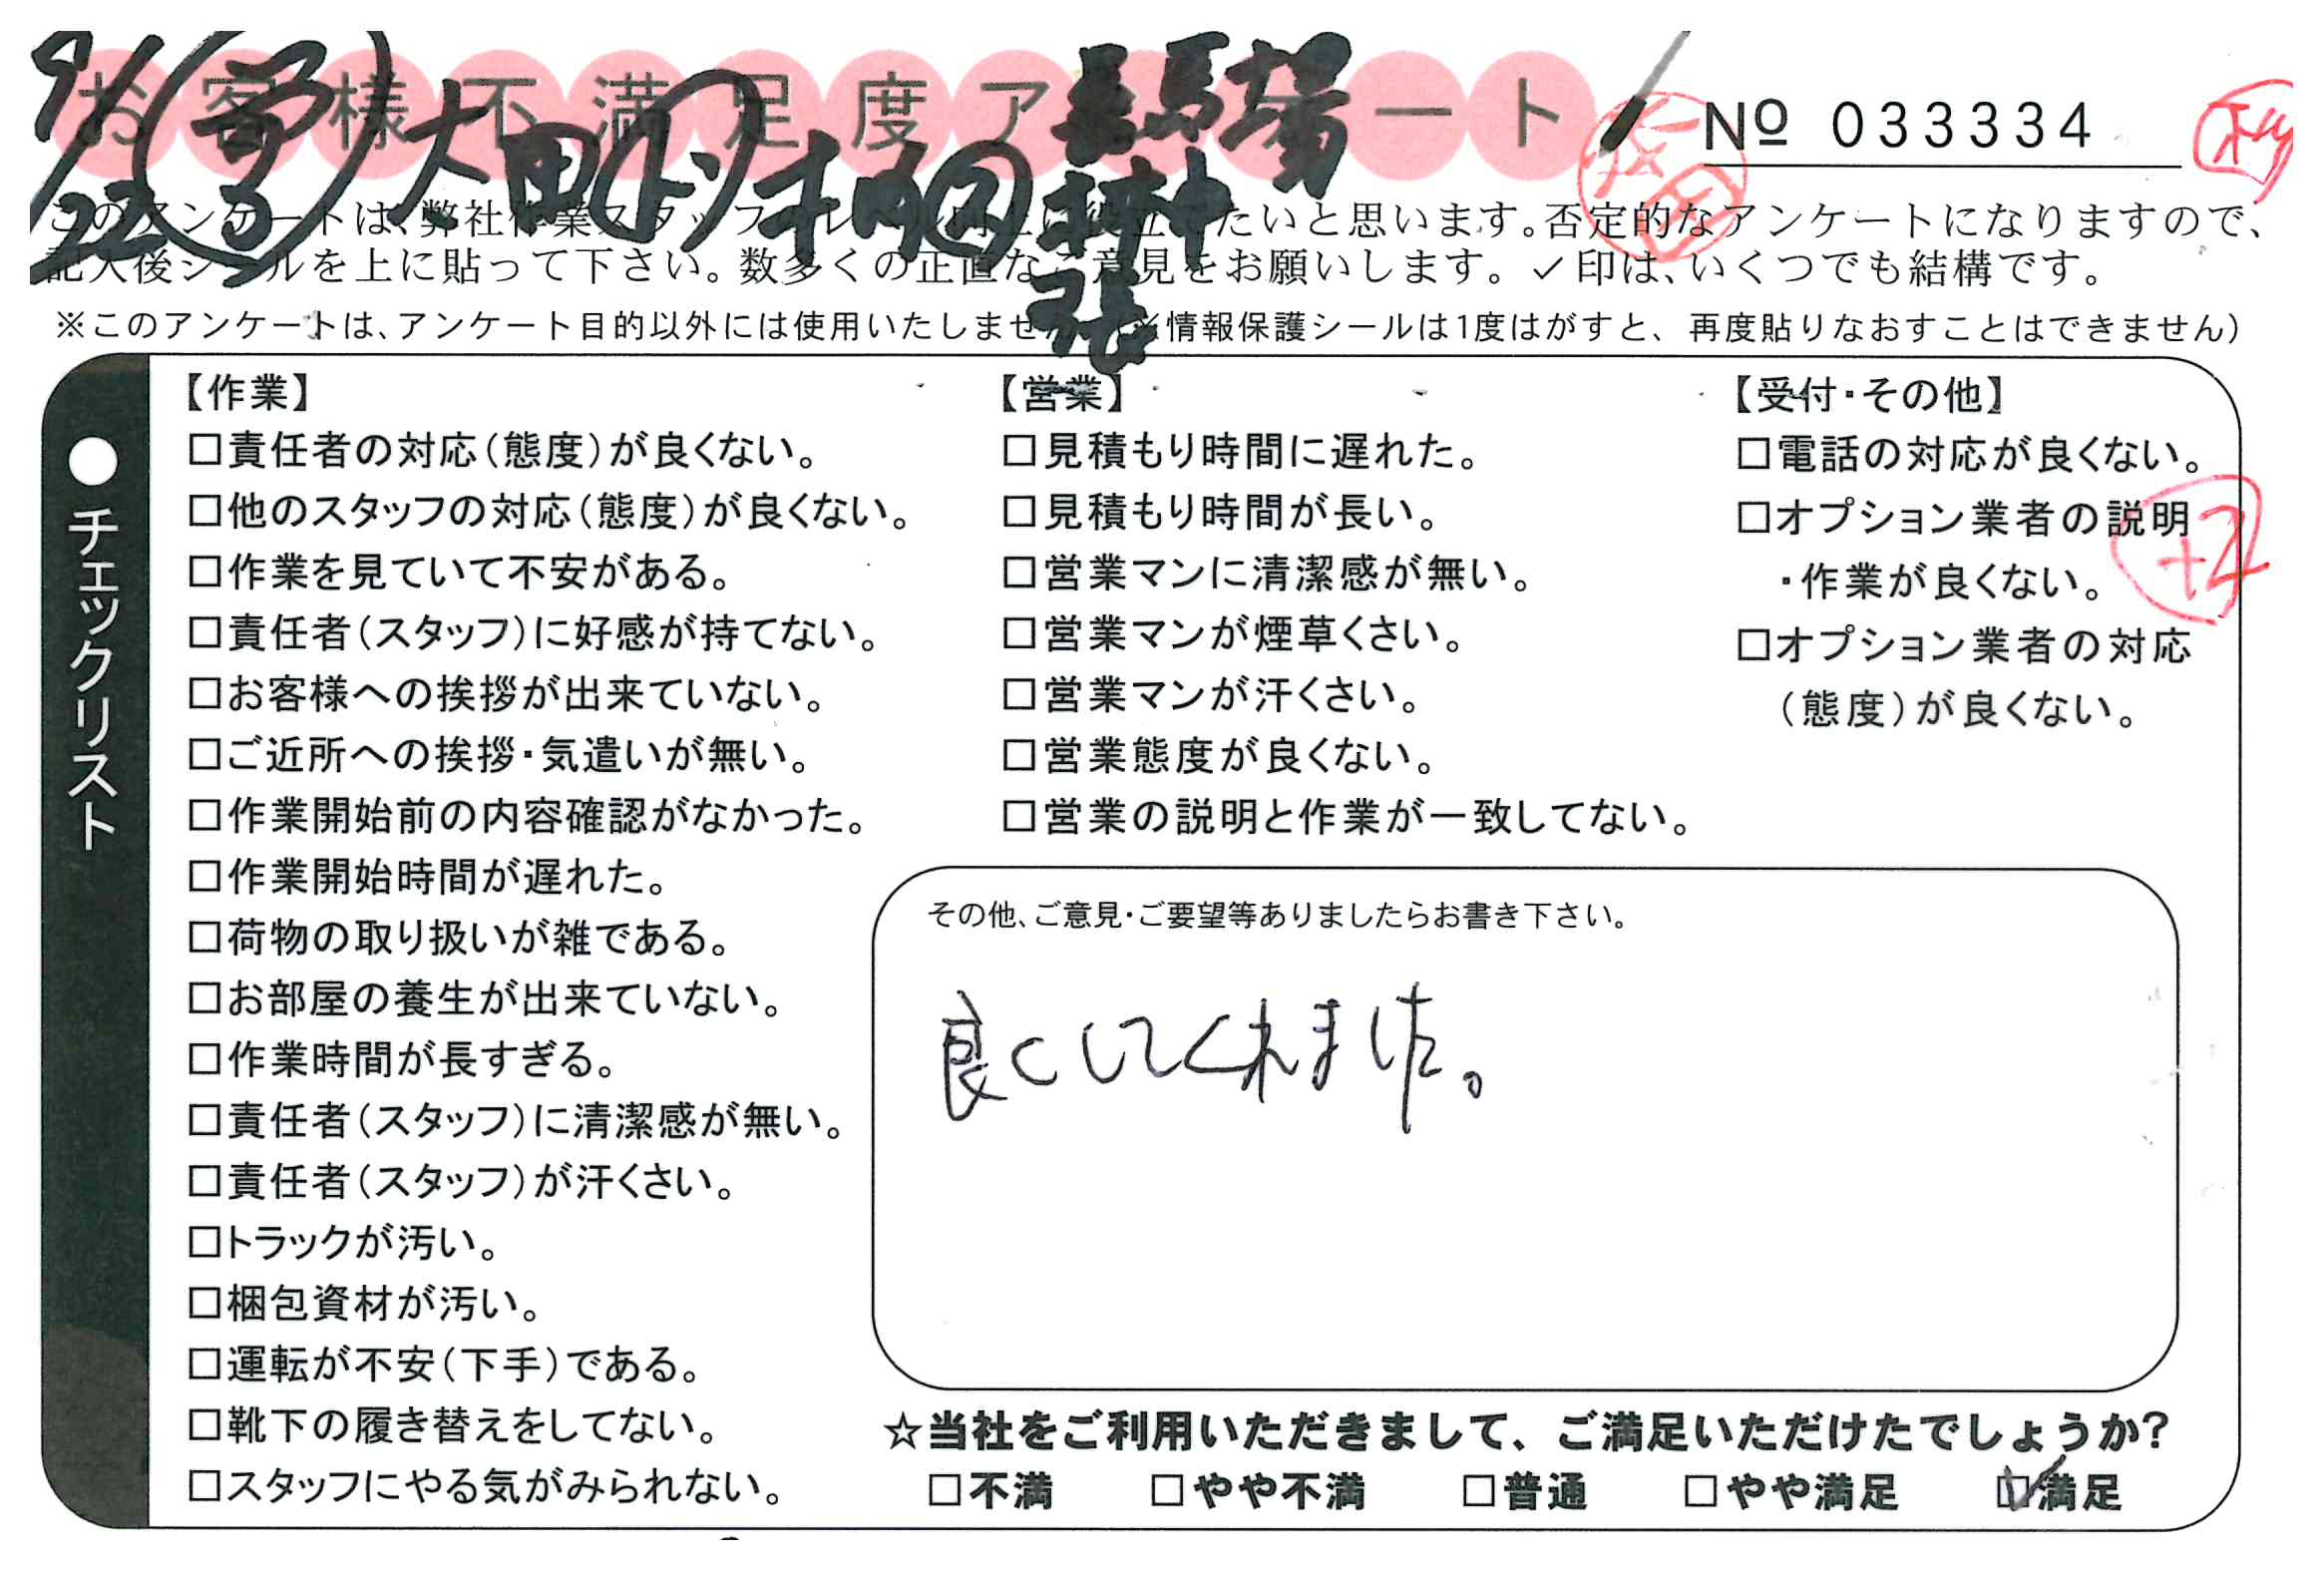 お客様不満足度アンケート
№ 033334
このアンケートは、弊社作業スタッフ
たいと思います。否定的なアンケートになりますので、
記入後シールを上に貼って下さい。数多くの正直なご意見をお願いします。✓印は、いくつでも結構です。
※このアンケートは、アンケート目的以外には使用いたしません
※情報保護シールは1度はがすと、再度貼りなおすことはできません)
●チェックリスト
【作業】
□責任者の対応(態度)が良くない。
□他のスタッフの対応(態度)が良くない。
□作業を見ていて不安がある。
□責任者(スタッフ)に好感が持てない。
□お客様への挨拶が出来ていない。
□ご近所への挨拶・気遣いが無い。
□作業開始前の内容確認がなかった。
□作業開始時間が遅れた。
□荷物の取り扱いが雑である。
□お部屋の養生が出来ていない。
□作業時間が長すぎる。
□責任者(スタッフ)に清潔感が無い。
□責任者(スタッフ)が汗くさい。
□トラックが汚い。
□梱包資材が汚い。
□運転が不安(下手)である。
□靴下の履き替えをしてない。
□スタッフにやる気がみられない。
【営業】
□見積もり時間に遅れた。
□見積もり時間が長い。
□営業マンに清潔感が無い。
□営業マンが煙草くさい。
□営業マンが汗くさい。
□営業態度が良くない。
□営業の説明と作業が一致してない。
【受付・その他】
□電話の対応が良くない。
□オプション業者の説明
・作業が良くない。
□オプション業者の対応
(態度)が良くない。
+2
その他、ご意見・ご要望等ありましたらお書き下さい。
良くしてくれました。
☆当社をご利用いただきまして、ご満足いただけたでしょうか?
□不満 □やや不満 □普通 □やや満足 ☑満足